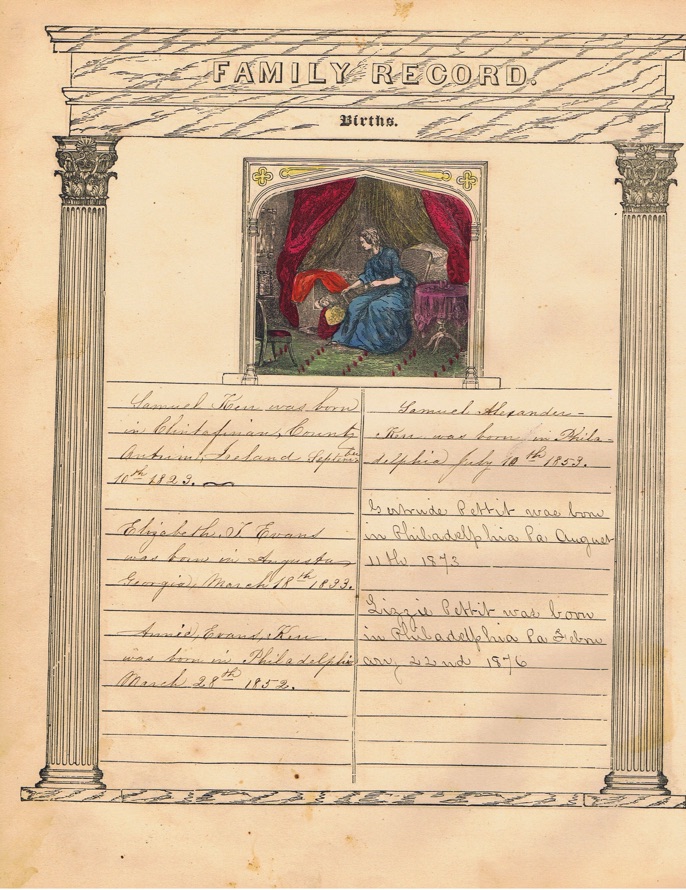 FAMILY RECORD.
Births.
Samuel Kerr was born
in County
Antrim, Ireland
10th 1823.
Elizabeth T Evans
was born in Augusta
Georgia, March 18th 1833.
Annie, Evans, Kerr
was born in Philadelphia
March 28th 1852.
Samuel Alexander-
Kerr was born in Phila-
delphia July 10th 1853.
Gertrude Pettit was born
in Philadelphia Pa August
11th 1873
Lizzie Pettit was born
in Philadelphia Pa Febru
ary 22nd 1876